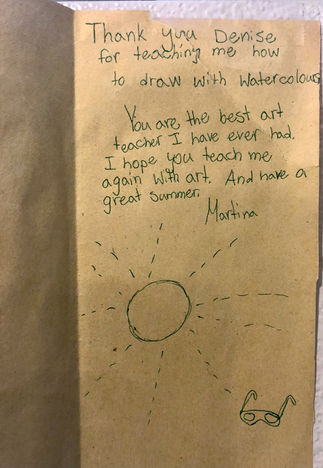 Thank you Denise
for teaching me how
to draw with watercolours
You are the best art
teacher I have ever had.
I hope you teach me
again with art. And have a
great summer.
Martina